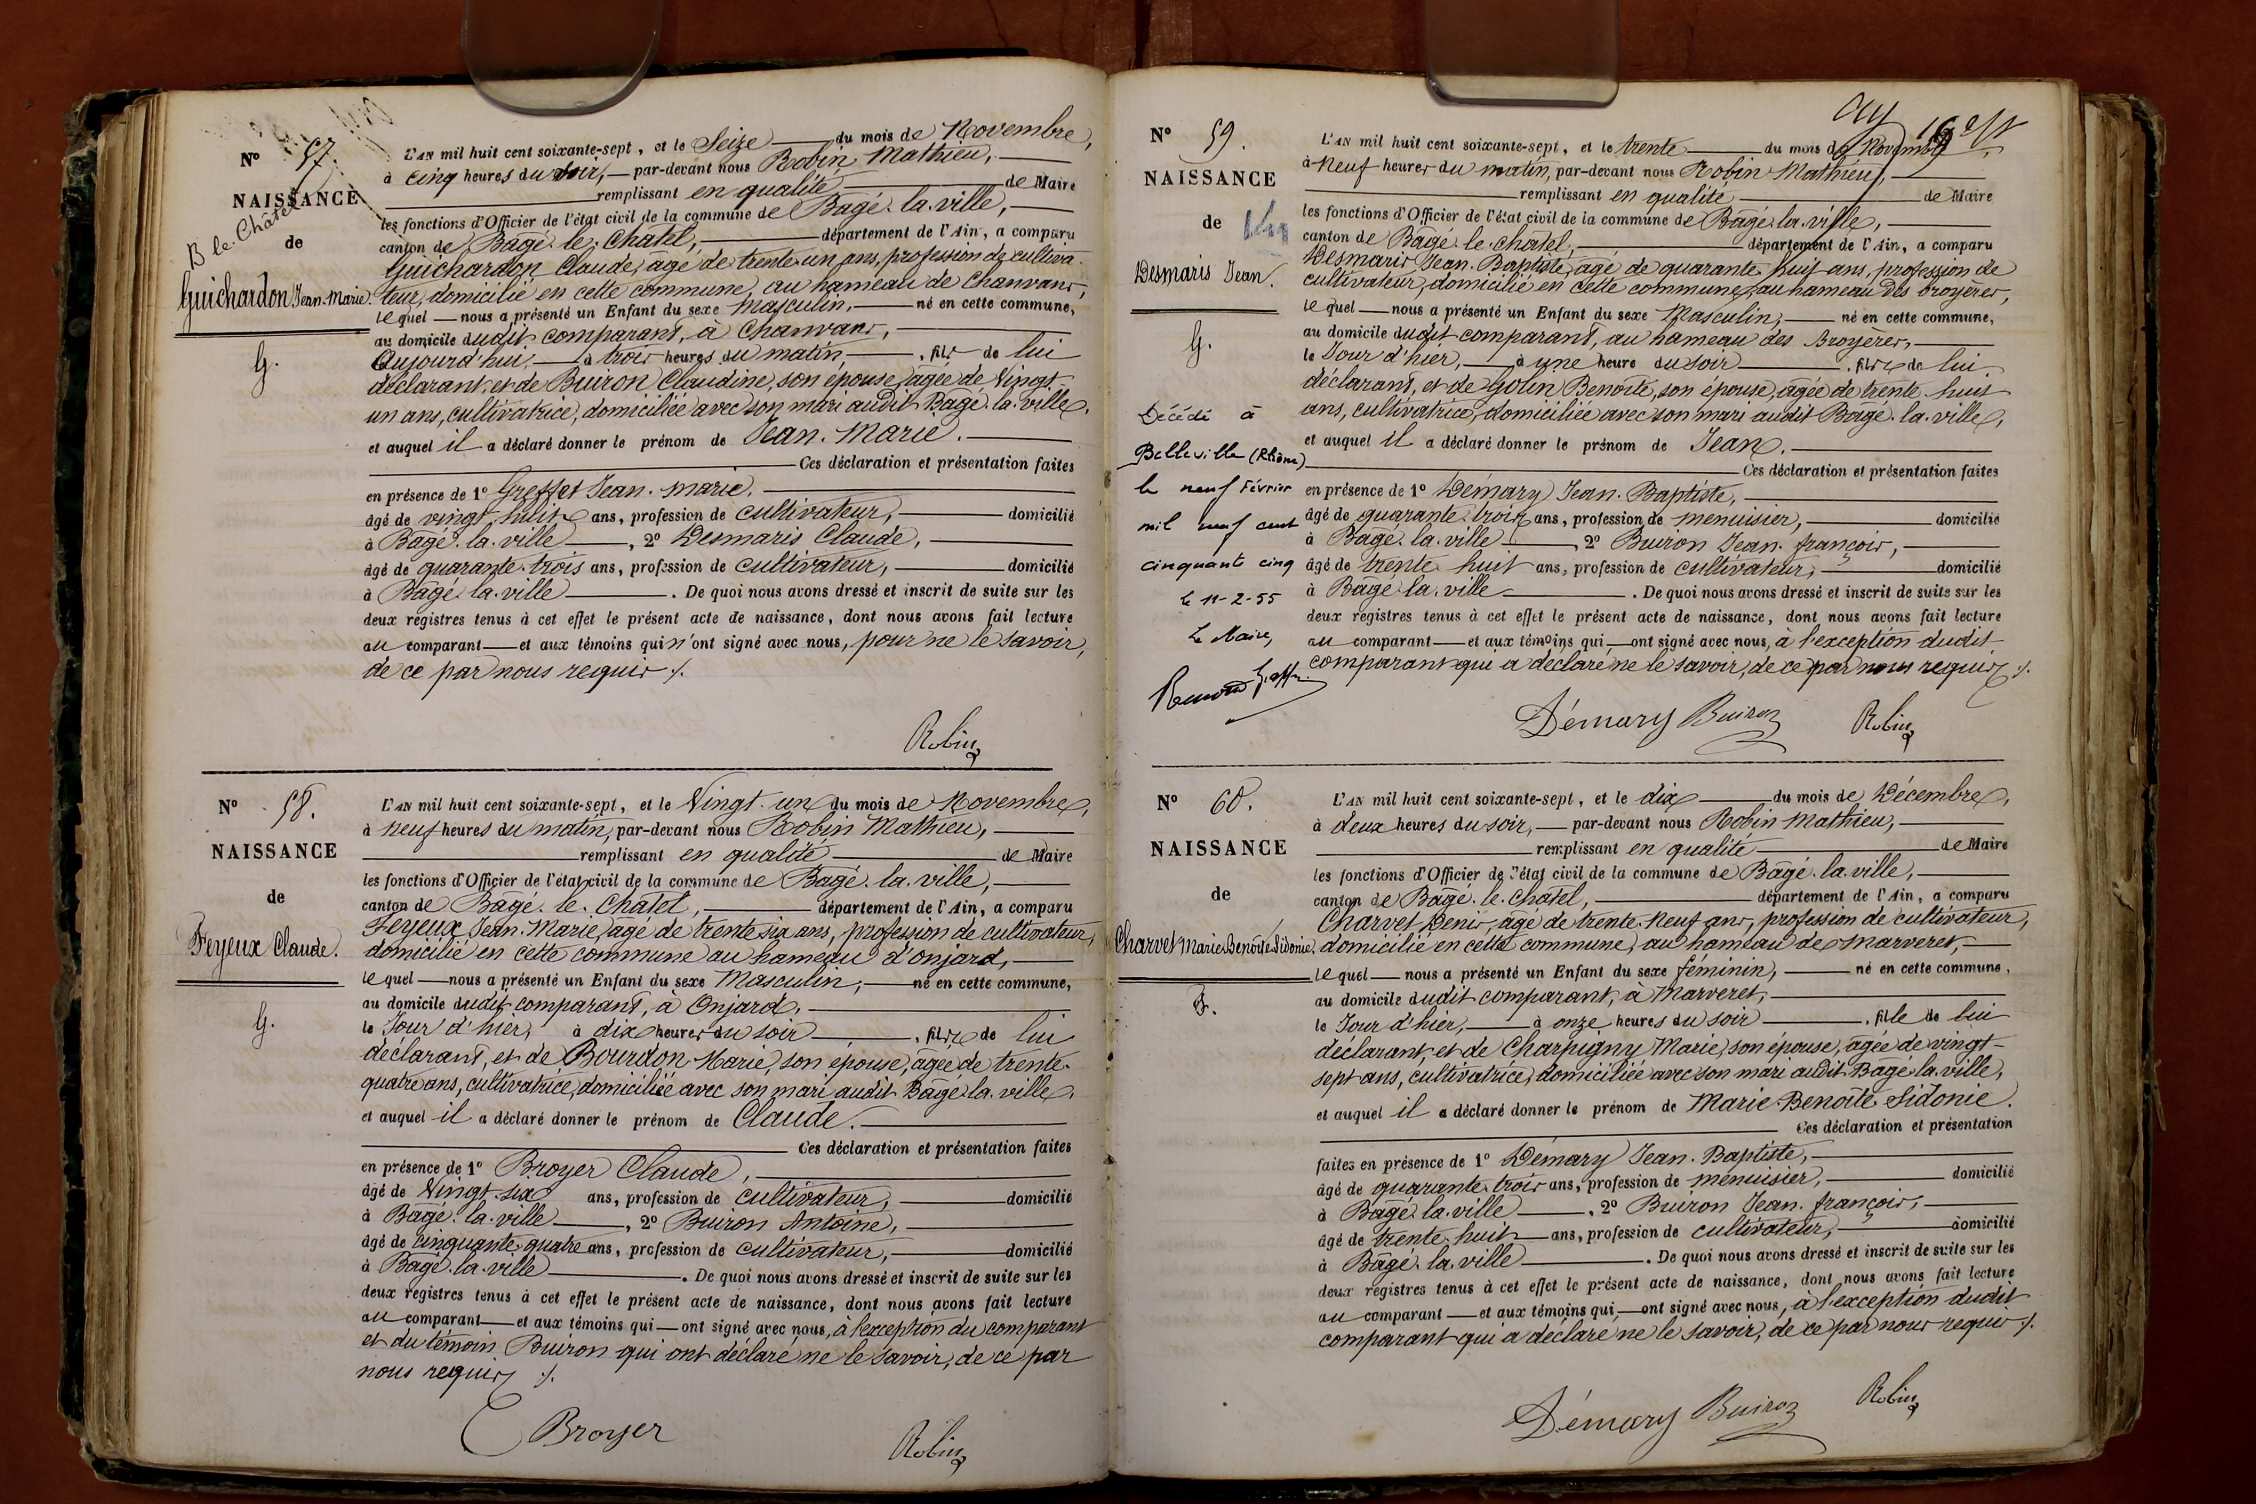 N° 57.
NAISSANCE
B le. Châtel
de
Guichardon Jean. Marie.
G.
L'AN mil huit cent soixante-sept, et le Seize du mois de Novembre,
à cinq heures du soir, par-devant nous Robin Mathieu,
remplissant en qualité de Maire
les fonctions d'Officier de l'état civil de la commune de Bagé. la. ville,
canton de Bagé. le. Chatel, département de l'Ain, a comparu
Guichardon Claude, agé de trente un ans, profession de cultiva-
teur, domicilié en cette commune, au hameau de Chanvans,
lequel nous a présenté un Enfant du sexe Masculin, né en cette commune,
au domicile dudit comparant, à Chanvans,
Aujourd'hui, à trois heures du matin, fils de lui
déclarant, et de Buiron Claudine, son épouse, agée de Vingt-
un ans, cultivatrice, domiciliée avec son mari audit Bagé. la. ville,
et auquel il a déclaré donner le prénom de Jean. Marie.
Ces déclaration et présentation faites
en présence de 1° Greffet Jean. marie,
âgé de vingt huit ans, profession de cultivateur, domicilié
à Bagé. la. ville, 2° Desmaris Claude,
âgé de quarante. trois ans, profession de cultivateur, domicilié
à Bagé. la. ville. De quoi nous avons dressé et inscrit de suite sur les
deux registres tenus à cet effet le présent acte de naissance, dont nous avons fait lecture
au comparant et aux témoins qui n'ont signé avec nous, pour ne le savoir,
de ce par nous requis ./.
Robin
N° 58.
NAISSANCE
de
Feyeux Claude.
G.
L'AN mil huit cent soixante-sept, et le Vingt. un du mois de Novembre,
à neuf heures du matin, par-devant nous Robin Mathieu,
remplissant en qualité de Maire
les fonctions d'Officier de l'état civil de la commune de Bagé. la. ville,
canton de Bagé. le. Chatel, département de l'Ain, a comparu
Feyeux Jean. Marie, agé de trente six ans, profession de cultivateur,
domicilié en cette commune au hameau d'Onjard,
lequel nous a présenté un Enfant du sexe Masculin, né en cette commune,
au domicile dudit comparant, à Onjard,
le Jour d'hier, à dix heures du soir, fils de lui
déclarant, et de Bourdon Marie, son épouse, agée de trente-
quatre ans, cultivatrice, domiciliée avec son mari audit Bagé. la. ville,
et auquel il a déclaré donner le prénom de Claude.
Ces déclaration et présentation faites
en présence de 1° Broyer Claude,
âgé de Vingt. six ans, profession de cultivateur, domicilié
à Bagé. la. ville, 2° Buiron Antoine,
âgé de cinquante. quatre ans, profession de cultivateur, domicilié
à Bagé. la. ville. De quoi nous avons dressé et inscrit de suite sur les
deux registres tenus à cet effet le présent acte de naissance, dont nous avons fait lecture
au comparant et aux témoins qui ont signé avec nous, à l'exception du comparant
et du témoin Buiron qui ont déclaré ne le savoir, de ce par
nous requis ./.
Broyer Robin
N° 59.
NAISSANCE
de
Desmaris Jean.
G.
Décédé à
Belleville (Rhône)
le neuf Février
mil neuf cent
cinquante cinq
le 11-2-55
Le Maire,
L'AN mil huit cent soixante-sept, et le trente du mois de Novembre,
à Neuf heures du matin, par-devant nous Robin Mathieu,
remplissant en qualité de Maire
les fonctions d'Officier de l'état civil de la commune de Bagé. la. ville,
canton de Bagé. le. châtel, département de l'Ain, a comparu
Desmaris Jean. Baptiste, agé de quarante. huit ans, profession de
cultivateur, domicilié en cette commune, au hameau des broyères,
lequel nous a présenté un Enfant du sexe Masculin, né en cette commune,
au domicile dudit comparant, au hameau des Broyères,
le Jour d'hier, à une heure du soir, fils de lui
déclarant, et de Golin Benoite, son épouse, agée de trente huit
ans, cultivatrice, domiciliée avec son mari audit Bagé. la. ville,
et auquel il a déclaré donner le prénom de Jean.
Ces déclaration et présentation faites
en présence de 1° Démary Jean. Baptiste,
âgé de quarante. trois ans, profession de menuisier, domicilié
à Bagé. la. ville, 2° Buiron Jean. françois,
âgé de trente huit ans, profession de cultivateur, domicilié
à Bagé. la. ville. De quoi nous avons dressé et inscrit de suite sur les
deux registres tenus à cet effet le présent acte de naissance, dont nous avons fait lecture
au comparant et aux témoins qui ont signé avec nous, à l'exception dudit
comparant qui a déclaré ne le savoir, de ce par nous requis ./.
Démary Buiron Robin
N° 60.
NAISSANCE
de
Charvet Marie. Benoîte. Sidonie.
F.
L'AN mil huit cent soixante-sept, et le dix du mois de Décembre,
à deux heures du soir, par-devant nous Robin Mathieu,
remplissant en qualité de Maire
les fonctions d'Officier de l'état civil de la commune de Bagé. la. ville,
canton de Bagé. le. Chatel, département de l'Ain, a comparu
Charvet Denis, agé de trente. Neuf ans, profession de cultivateur,
domicilié en cette commune, au hameau de Marveret,
lequel nous a présenté un Enfant du sexe féminin, né en cette commune,
au domicile dudit comparant, à Marveret,
le Jour d'hier, à onze heures du soir, fille de lui
déclarant, et de Charpigny Marie, son épouse, agée de vingt-
sept ans, cultivatrice, domiciliée avec son mari audit Bagé. la. ville,
et auquel il a déclaré donner le prénom de Marie Benoîte Sidonie.
Ces déclaration et présentation
faites en présence de 1° Démary Jean. Baptiste,
âgé de quarante. trois ans, profession de menuisier, domicilié
à Bagé. la. ville, 2° Buiron Jean. françois,
âgé de trente. huit ans, profession de cultivateur, domicilié
à Bagé. la. ville. De quoi nous avons dressé et inscrit de suite sur les
deux registres tenus à cet effet le présent acte de naissance, dont nous avons fait lecture
au comparant et aux témoins qui ont signé avec nous, à l'exception dudit
comparant qui a déclaré ne le savoir, de ce par nous requis ./.
Démary Buiron Robin